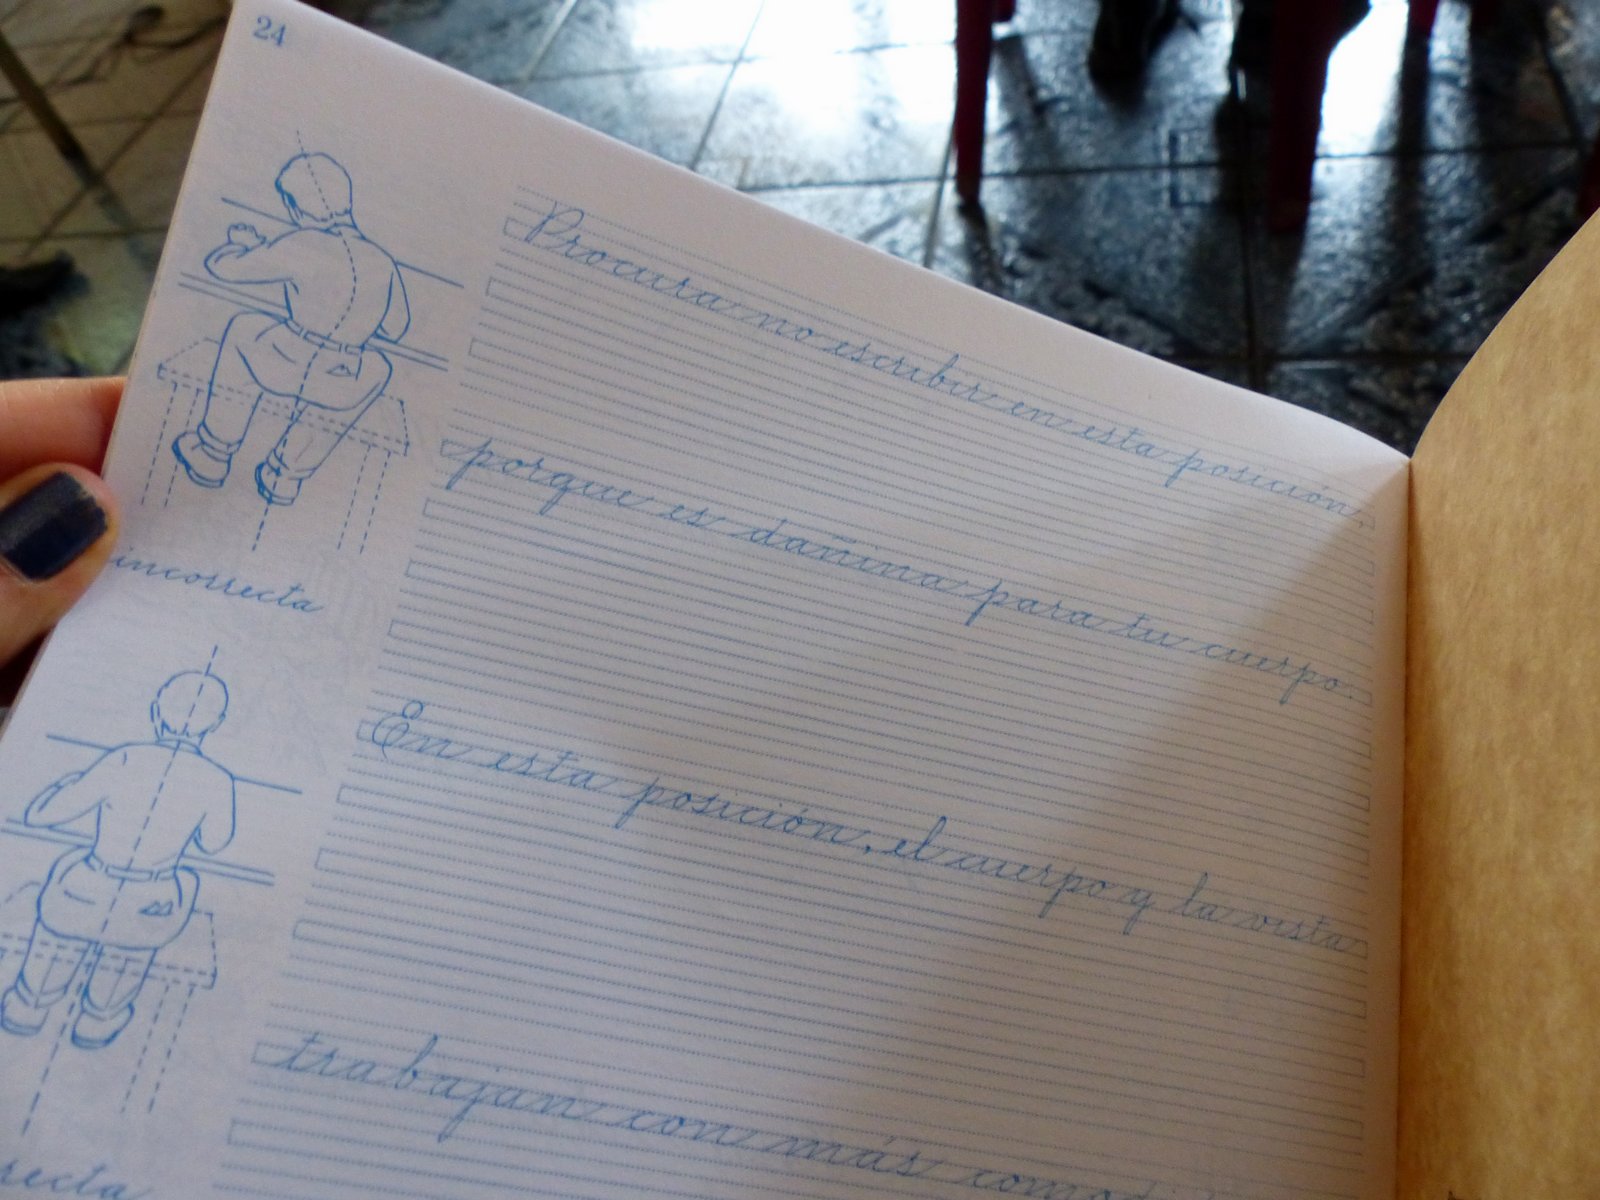 24
Procura no escribir en esta posición,
porque es dañina para tu cuerpo.
incorrecta
En esta posición, el cuerpo y la vista
trabajan con más